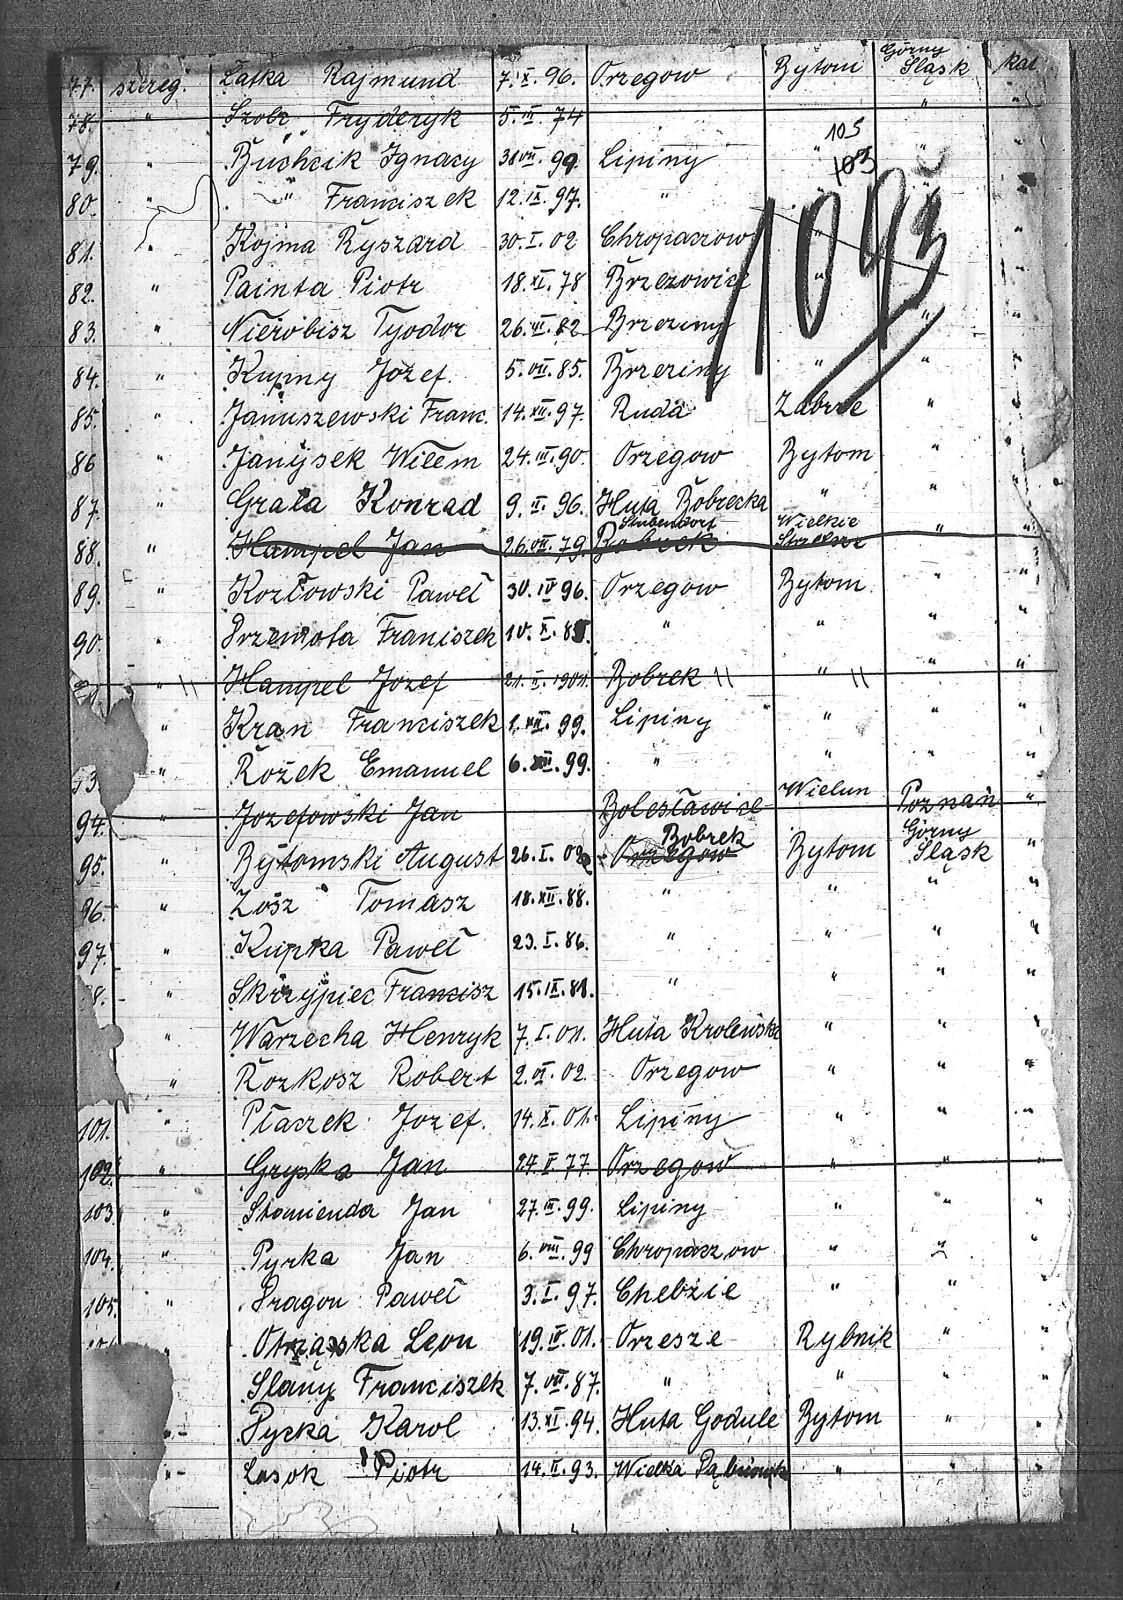 77. szereg. Łatka Rajmund 7. X. 96. Orzegow Bytom Górny Śląsk kat.
78. " Szobr Fryderyk 5. III. 74 "
105
79. " Buchcik Ignacy 30 VII. 99. Lipiny " "
103
80. " " Franciszek 12. IX. 97. "
1093
81. " Kojma Ryszard 30. I. 02 Chropaczow "
82. " Painta Piotr 18. XI. 78 Brzezowice "
83. " Nierobisz Tyodor 26. VI. 82 Brzeziny "
84. " Kupny Jozef. 5. VII. 85. Brzeziny " "
85. " Januszewski Franc. 14. XII. 97. Ruda Zabrze "
86 " Janysek Wilem 24. III. 90. Orzegow Bytom "
87. " Grala Konrad 9. II. 96. Huta Bobrecka " "
Stubendorf Wielkie
88. " Hampel Jan 26. VII. 79. Bobrek Strzelce " "
89. " Kozłowski Paweł 30. IV 96. Orzegow Bytom " "
90. " Przemota Franiszek 10. X. 85. " " " "
" Hampel Jozef 21. II. 1901. Bobrek " " "
" Kran Franciszek 1. VII. 99. Lipiny " " "
93. " Rożek Emanuel 6. XII. 99. " " " "
94. " Jozefowski Jan Bolesławice Wielun Poznań "
Bobrek Górny
95. " Bytomski August 26. I. 02 Orzegow Bytom Śląsk "
96. " Zosz Tomasz 18. XII. 88. " " " "
97. " Kupka Paweł 23. I. 86. " " " "
8. " Skrzypiec Francisz 15. IX. 81. " " " "
" Warzecha Henryk 7. I. 01. Huta Krolewska " " "
" Rozkosz Robert 2. VI. 02. Orzegow " " "
101. " Płaczek Jozef. 14. X. 01. Lipiny " " "
102. " Gryska Jan 24. V. 77. Orzegow " " "
103. " Słomienda Jan 27. III. 99. Lipiny " " "
104. " Pyrka Jan 6. VIII. 99 Chropaczow " " "
105. " Dragon Paweł 3. I. 97. Chebzie " " "
" Otrząska Leon 19. IV. 01. Orzesze Rybnik " "
Slany Franciszek 7. VII. 87. " " " "
" Pyrka Karol 13. XI. 94. Huta Godule Bytom " "
" Lasok Piotr 14. II. 93. Wielka Dąbrowka " " "